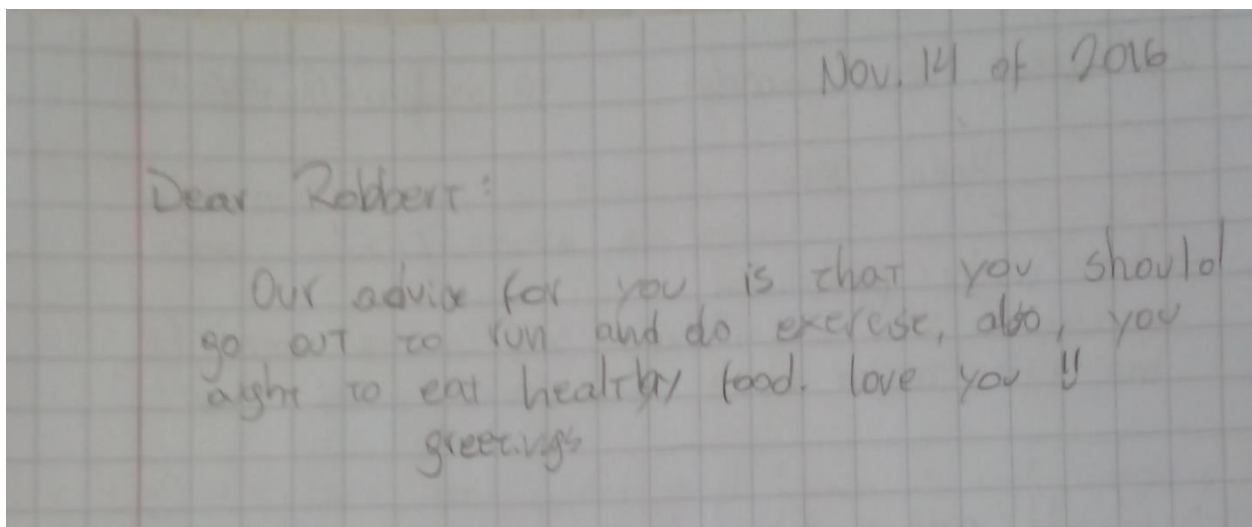 Nov. 14 of 2016
Dear Robbert:
Our advice for you is that you should
go out to run and do exercise, also, you
aght to eat healthy food. love you !!
greetings